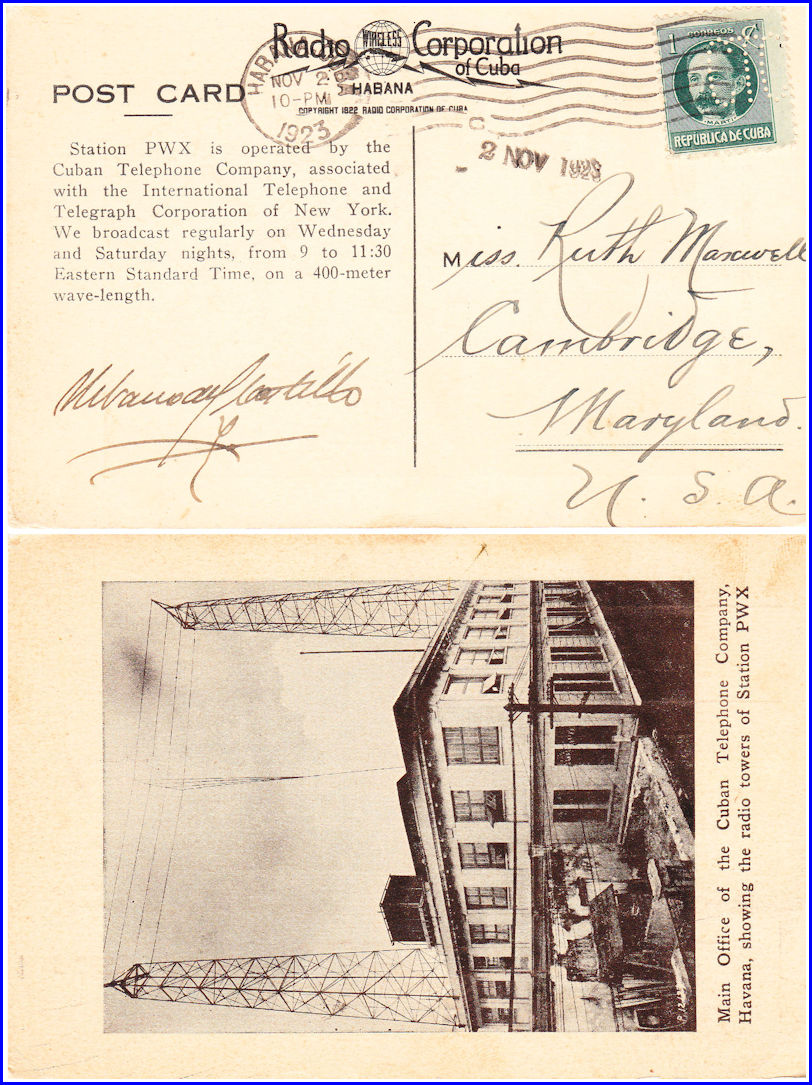 Radio WIRELESS Corporation
of Cuba
HABANA
COPYRIGHT 1922 RADIO CORPORATION OF CUBA
HABANA
NOV 2
10-PM
1923
1 CORREOS
MARTI
REPUBLICA DE CUBA
POST CARD
C
2 NOV 1923
Station PWX is operated by the
Cuban Telephone Company, associated
with the International Telephone and
Telegraph Corporation of New York.
We broadcast regularly on Wednesday
and Saturday nights, from 9 to 11:30
Eastern Standard Time, on a 400-meter
wave-length.
Miss. Ruth Maxwell
Cambridge,
Maryland.
U. S. A.
Main Office of the Cuban Telephone Company,
Havana, showing the radio towers of Station PWX